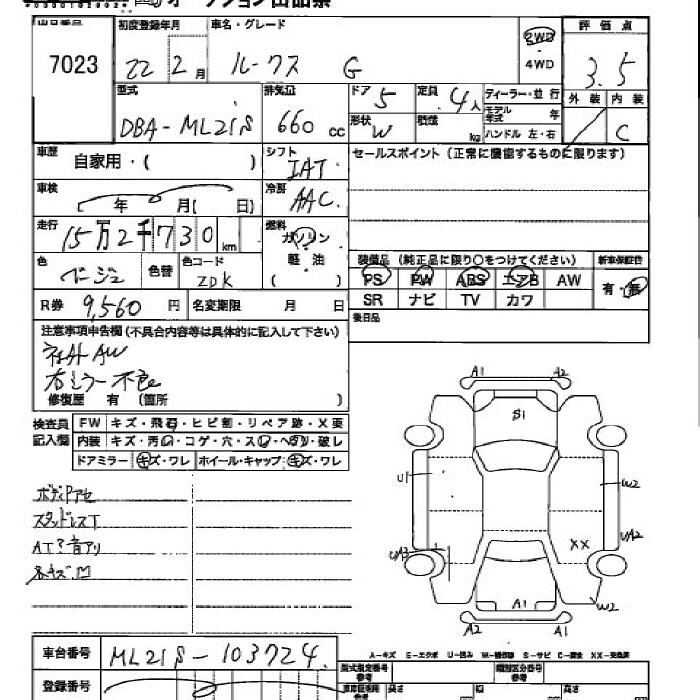 オークション出品票
出品番号 初度登録年月 車名・グレード 評価点
7023 22 2月 ルークス G 2WD ・ 4WD 3.5
型式 排気量 ドア 定員 ディーラー・並行 外装 内装
DBA-ML21S 660 cc 5 4人 モデル年式 年 C
形状 W 積載 kg ハンドル 左・右
車歴 自家用・( ) シフト IAT セールスポイント (正常に機能するものに限ります)
車検 年 月( 日) 冷房 AAC
走行 15万2千730km 燃料 ガソリン
色 ベージュ 色替 色コード ZDK 軽・油 ( )
装備品 (純正品に限り○をつけてください) 新車保証書
PS PW ABS エアB AW 有・無
SR ナビ TV カワ
R券 9,560 円 名変期限 月 日
後日品
注意事項申告欄 (不具合内容等は具体的に記入して下さい)
社外AW
右ミラー不良
修復歴 有 (箇所 )
検査員記入欄 FW キズ・飛石・ヒビ割・リペア跡・X要
内装 キズ・汚れ・コゲ・穴・スレ・ヘタリ・破レ
ドアミラー キズ・ワレ ホイール・キャップ キズ・ワレ
A1 A2
B1
U1 W2
UA2
XX
W2
A1
A2 A1
ボディPアセ
スタッドレスT
AT?音アリ
小キズ凹
A-キズ E-エクボ U-凹み W-補修跡 S-サビ C-腐食 XX-交換済
車台番号 ML21S-103724
型式指定番号 類別区分番号
登録番号 長さ 幅 高さ